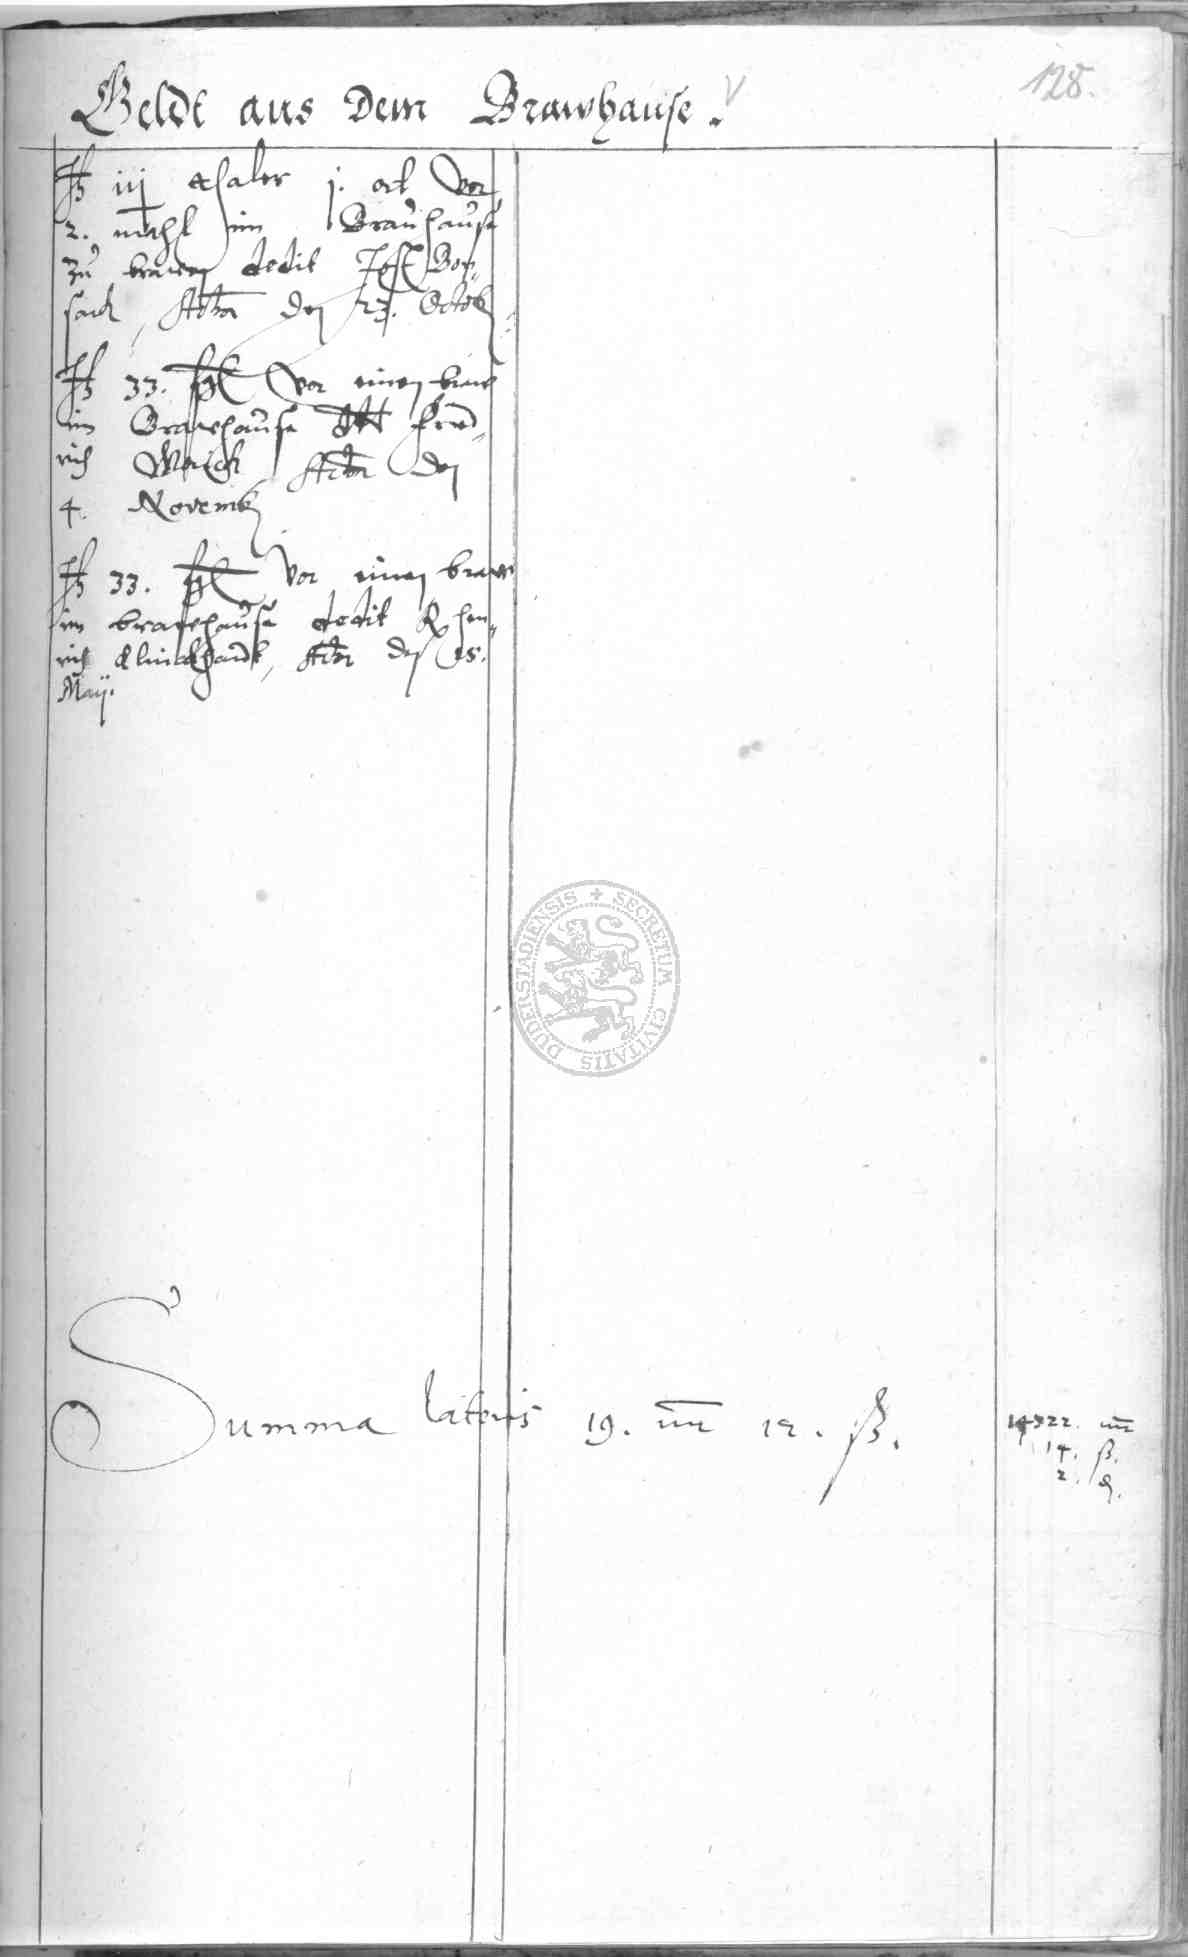 128.
Geldt aus Dem Brawhause.
It iij thaler j. ort vor
2. mahl im Brauhause
zu brawen dedit Jost
sack, Actum den 23. Octob
It 33. vor einen braw
im Brawhause dtt Fried
rich Actum den
4. Novemb
It 33. vor einen braw
im brawhause dedit Hen
rich Actum den 15.
Maij.
SECRETUM CIVITATIS DUDERSTADIENSIS
Summa lateris 19. mr 12. ß.
322. mr
14. ß.
2. d.